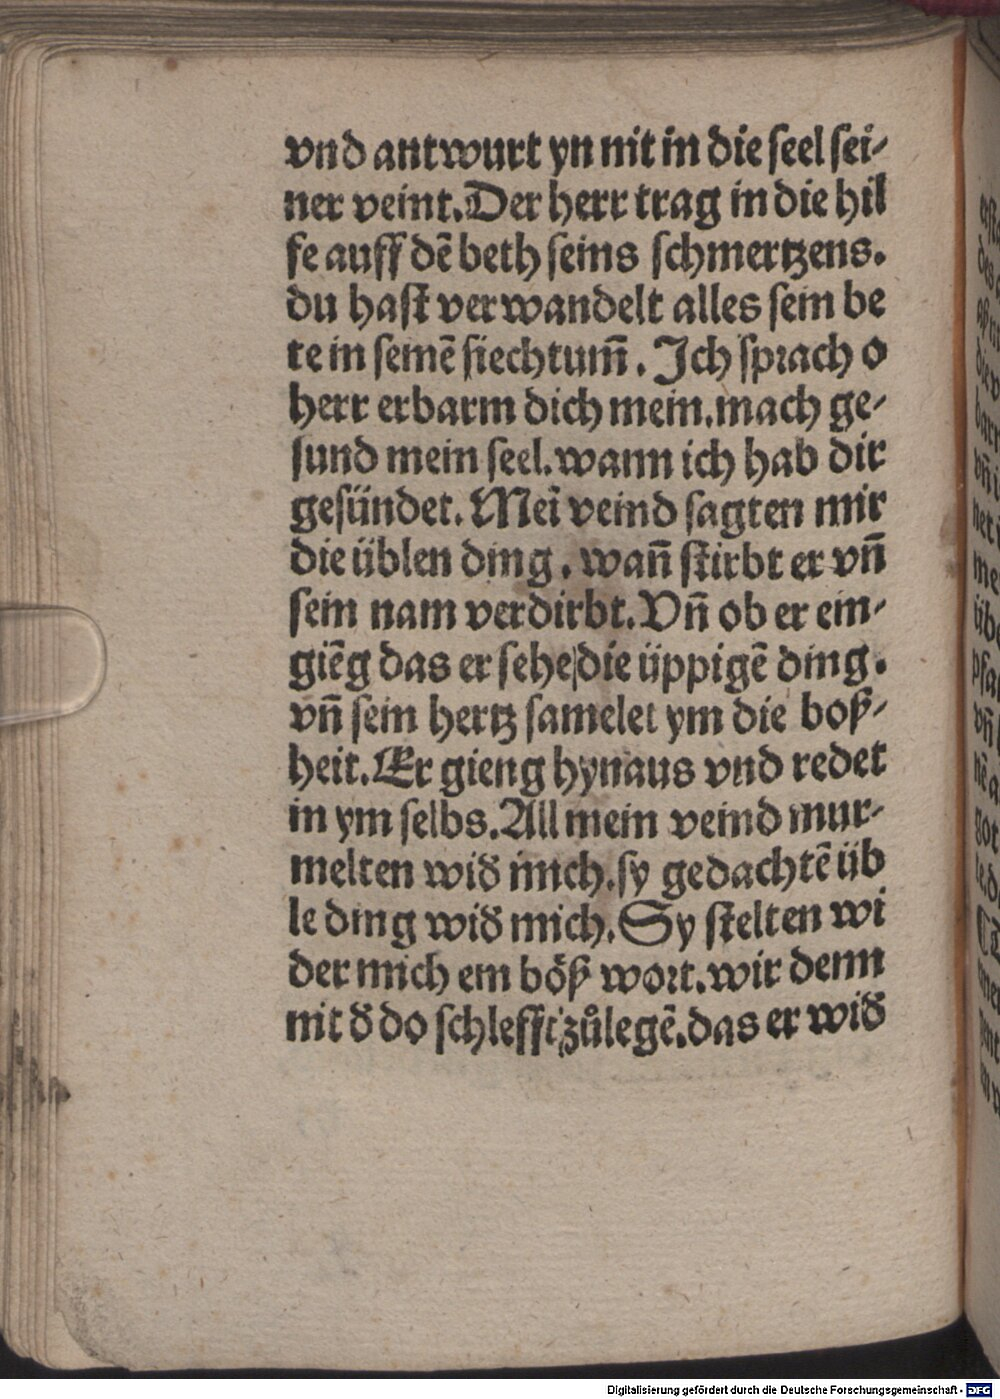 vnd antwurt yn nit in die seel sei-
ner veint. Der herr trag in die hil
fe auff dē beth seins schmertzens.
du hast verwandelt alles sein be
te in seinē siechtum̄. Ich sprach o
herr erbarm dich mein. mach ge-
sund mein seel. wann ich hab dir
gesündet. Mei veind sagten mir
die üblen ding. wan̄ stirbt er vn̄
sein nam verdirbt. Vn̄ ob er ein-
giēg das er sehe die üppigē ding.
vn̄ sein hertz samelet ym die boß-
heit. Er gieng hynaus vnd redet
in ym selbs. All mein veind mur-
melten wid̄ mich. sy gedachtē üb
le ding wid̄ mich. Sy stelten wi
der mich ein böß wort. wir denn
nit d̄ do schlefft zůlegē. das er wid̄
Digitalisierung gefördert durch die Deutsche Forschungsgemeinschaft - DFG